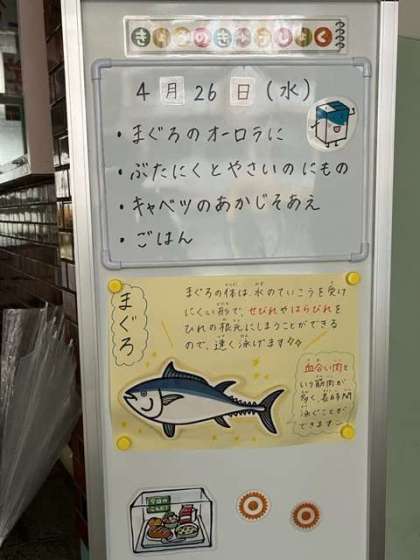 きょうのきゅうしょく
4月26日(水)
・まぐろのオーロラに
・ぶたにくとやさいのにもの
・キャベツのあかじそあえ
・ごはん
まぐろ
まぐろの体は、水のていこうを受け
にくい形で、せびれやはらびれを
ひれの根元にしまうことができる
ので、速く泳げます
血合い肉と
いう筋肉が
多く、長時間
泳ぐことが
できます